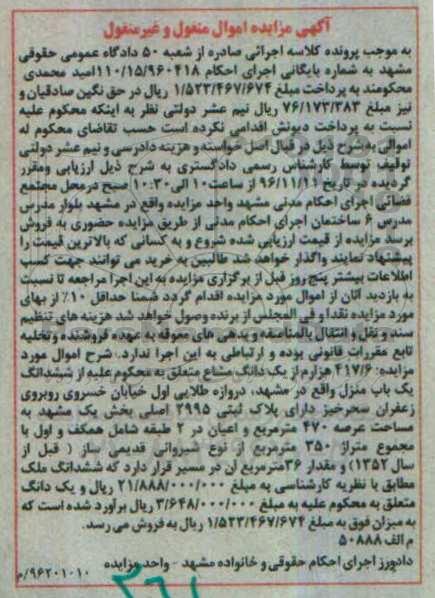 آگهی مزایده اموال منقول و غیرمنقول
به موجب پرونده کلاسه اجرائی صادره از شعبه ۵۰ دادگاه عمومی حقوقی
مشهد به شماره بایگانی اجرای احکام ۱۱۰/۱۵/۹۶۰۴۱۸ امید محمدی
محکومند به پرداخت مبلغ ۱/۵۲۳/۴۶۷/۶۷۴ ریال در حق نگین صادقیان و
نیز مبلغ ۷۶/۱۷۳/۳۸۳ ریال نیم عشر دولتی نظر به اینکه محکوم علیه
نسبت به پرداخت دیونش اقدامی نکرده است حسب تقاضای محکوم له
اموالی به شرح ذیل در قبال اصل خواسته و هزینه دادرسی و نیم عشر دولتی
توقیف توسط کارشناس رسمی دادگستری به شرح ذیل ارزیابی ومقرر
گردیده در تاریخ ۹۶/۱۱/۱۱ از ساعت ۱۰ الی ۱۰:۳۰ صبح درمحل مجتمع
قضائی اجرای احکام مدنی مشهد واحد مزایده واقع در مشهد بلوار مدرس
مدرس ۶ ساختمان اجرای احکام مدنی از طریق مزایده حضوری به فروش
برسد مزایده از قیمت ارزیابی شده شروع و به کسانی که بالاترین قیمت را
پیشنهاد نمایند واگذار خواهد شد طالبین به خرید می توانند جهت کسب
اطلاعات بیشتر پنج روز قبل از برگزاری مزایده به این اجرا مراجعه تا نسبت
به بازدید آنان از اموال مورد مزایده اقدام گردد ضمنا حداقل ۱۰٪ از بهای
مورد مزایده نقدا و فی المجلس از برنده وصول خواهد شد هزینه های تنظیم
سند و نقل و انتقال بالمناصفه و بدهی های معوقه به عهده فروشنده و تخلیه
تابع مقررات قانونی بوده و ارتباطی به این اجرا ندارد. شرح اموال مورد
مزایده: ۴۱۷/۶ هزارم از یک دانگ مشاع متعلق به محکوم علیه از ششدانگ
یک باب منزل واقع در مشهد، دروازه طلایی اول خیابان خسروی روبروی
زعفران سحرخیز دارای پلاک ثبتی ۲۹۹۵ اصلی بخش یک مشهد به
مساحت عرصه ۴۷۰ مترمربع و اعیان در ۲ طبقه شامل همکف و اول با
مجموع متراژ ۳۵۰ مترمربع از نوع شیروانی قدیمی ساز ( قبل از
سال ۱۳۵۲) و مقدار ۳۶ مترمربع آن در مسیر قرار دارد که ششدانگ ملک
مطابق با نظریه کارشناسی به مبلغ ۲۱/۸۸۸/۰۰۰/۰۰۰ ریال و یک دانگ
متعلق به محکوم علیه به مبلغ ۳/۶۴۸/۰۰۰/۰۰۰ ریال برآورد شده است که
به میزان فوق به مبلغ ۱/۵۲۳/۴۶۷/۶۷۴ ریال به فروش می رسد.
م الف ۵۰۸۸۸
دادورز اجرای احکام حقوقی و خانواده مشهد - واحد مزایده
۹۶۲۰۱۰۱۰/م